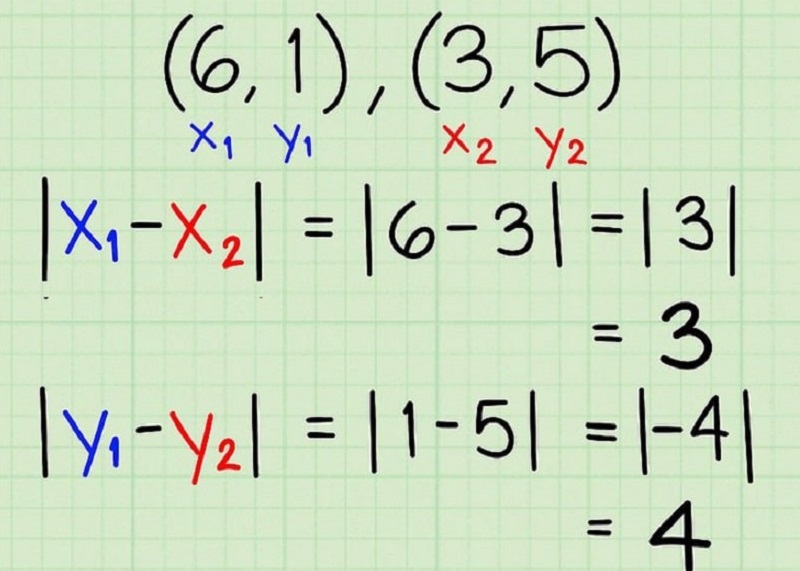 (6, 1), (3, 5)
x₁ y₁ x₂ y₂
|x₁ - x₂| = |6 - 3| = |3|
= 3
|y₁ - y₂| = |1 - 5| = |-4|
= 4